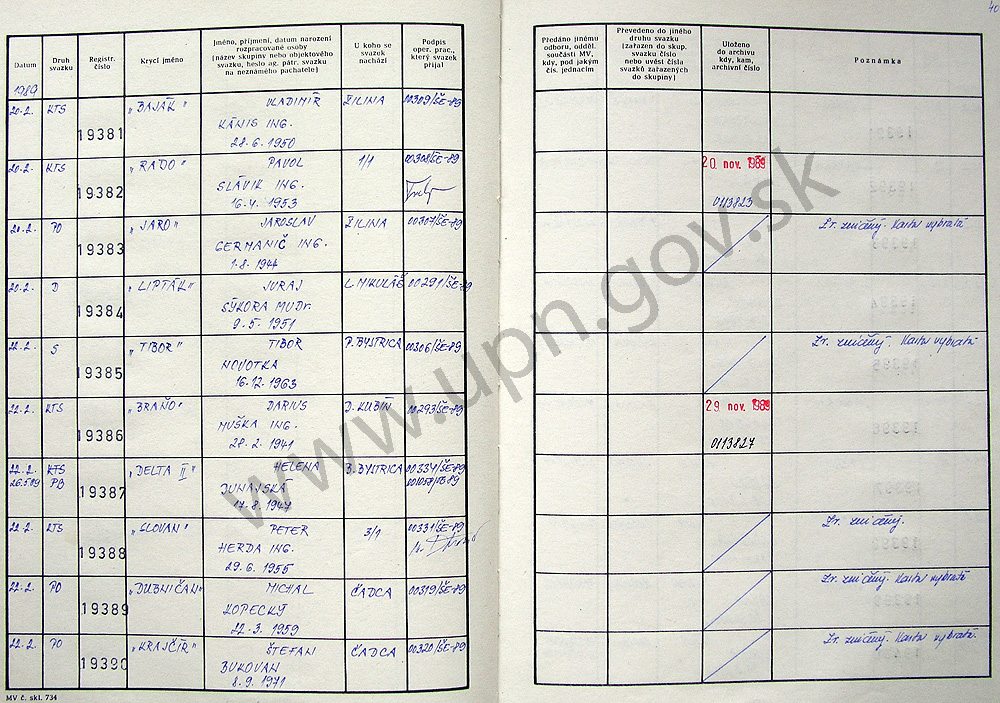 40
Datum
Druh svazku
Registr. číslo
Krycí jméno
Jméno, příjmení, datum narození rozpracované osoby (název skupiny nebo objektového svazku, heslo ag. pátr. svazku na neznámého pachatele)
U koho se svazek nachází
Podpis oper. prac., který svazek přijal
Předáno jinému odboru, odděl. součásti MV, kdy, pod jakým čís. jednacím
Převedeno do jiného druhu svazku (zařazen do skup. svazku číslo nebo uvést čísla svazků zařazených do skupiny)
Uloženo do archivu kdy, kam, archivní číslo
Poznámka
1989
20.2. KTS 19381 "BAJÁK" VLADIMÍR ŽILINA 00309/ŠE-89
KÁNIS ING.
28.6.1950
20.2. KTS 19382 "RADO" PAVOL 1/1 00308/ŠE-89 20. nov. 1989
SLÁVIK ING.
16.4.1953 0113823
20.2. PO 19383 "JARO" JAROSLAV ŽILINA 00307/ŠE-89 Zr. zničený. Karta vybratá
GERMANIČ ING.
1.8.1944
20.2. D 19384 "LIPTÁK" JURAJ L. MIKULÁŠ 00291/ŠE-89
SÝKORA MUDr.
9.5.1951
22.2. S 19385 "TIBOR" TIBOR P. BYSTRICA 00306/ŠE-89 Zr. zničený. Karta vybratá
NOVOTKA
16.12.1963
22.2. KTS 19386 "BRAŇO" DARIUS D. KUBÍN 00293/ŠE-89 29. nov. 1989
MUŠKA ING.
28.2.1941 0113827
22.2. KTS 19387 "DELTA II" HELENA B. BYSTRICA 00334/ŠE-89
26.5.89 PB DUNAJSKÁ
17.8.1947
22.2. KTS 19388 "SLOVAN" PETER 3/1 00331/ŠE-89 Zr. zničený.
HERDA ING.
29.6.1955
22.2. PO 19389 "DUBNIČAN" MICHAL ČADCA 00319/ŠE-89 Zr. zničený. Karta vybratá
KOPECKÝ
22.3.1959
22.2. PO 19390 "KRAJČÍR" ŠTEFAN ČADCA 00320/ŠE-89 Zr. zničený. Karta vybratá.
BUKOVAN
8.9.1971
MV č. skl. 734
www.upn.gov.sk